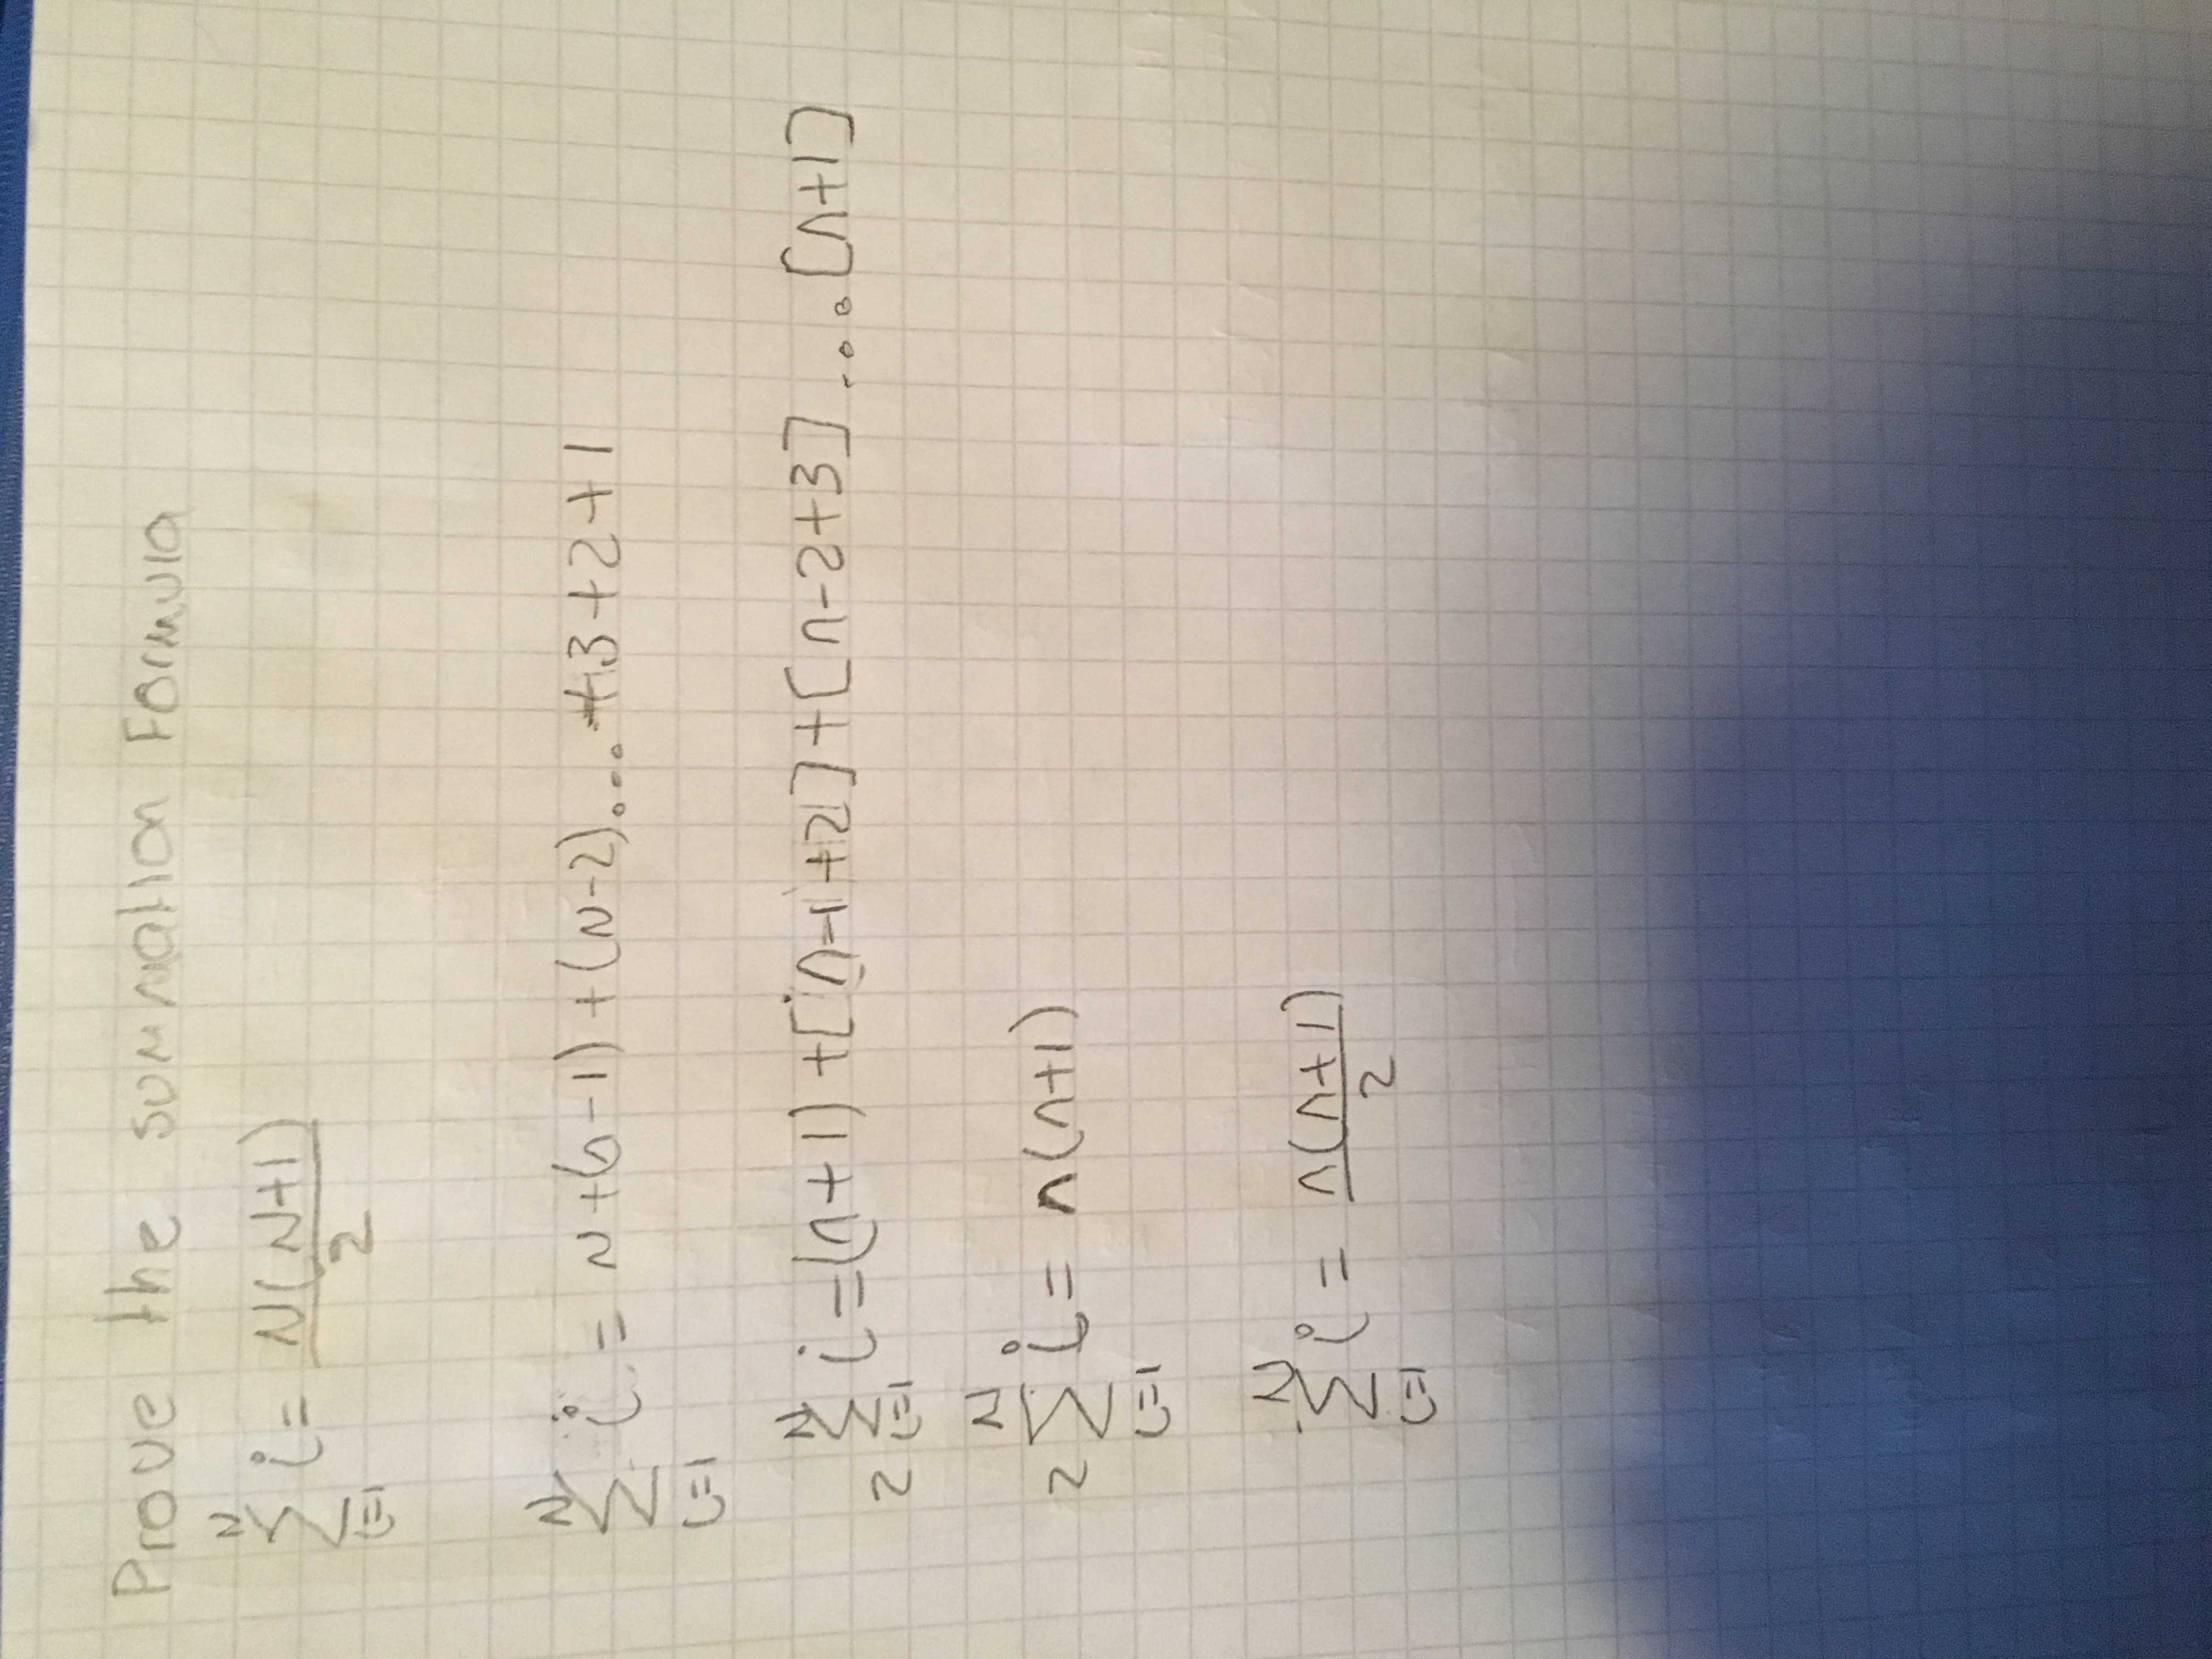 Prove the summation Formula
N
∑ i = N(N+1)
i=1 2
N
∑ i = N+(n-1)+(N-2)...+3+2+1
i=1
N
2 ∑ i =(n+1)+[n-1+2]+[n-2+3]...[n+1]
i=1
N
2 ∑ i = n(n+1)
i=1
N
∑ i = n(n+1)
i=1 2